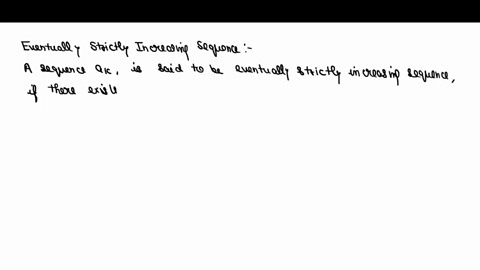 Eventually Strictly Increasing Sequence:-
A sequence aK, is said to be eventually strictly increasing sequence,
if there exist